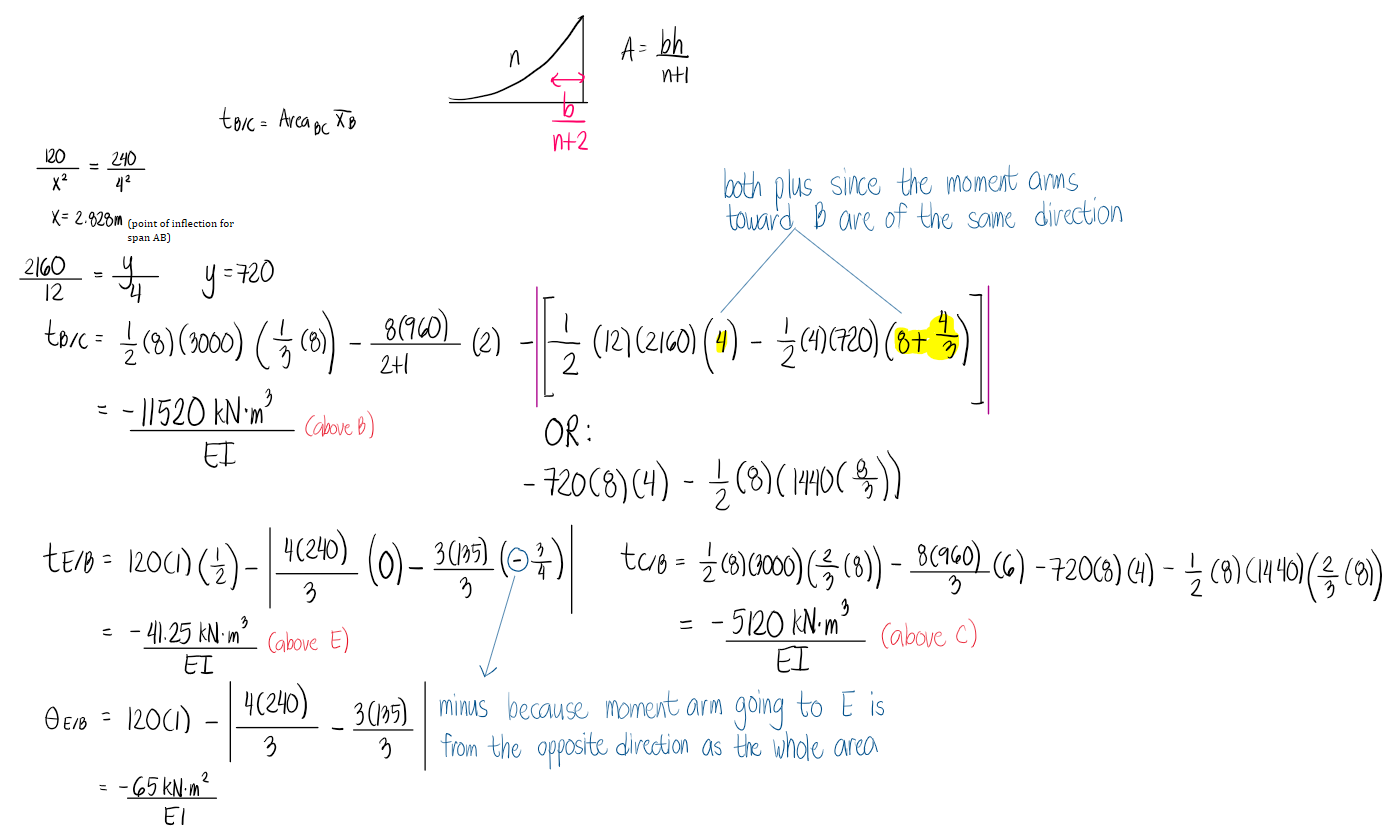 n
A = bh/(n+1)
b/(n+2)
t_B/C = Area_BC x̄_B
120/x² = 240/4²
x = 2.828m (point of inflection for
span AB)
both plus since the moment arms
toward B are of the same direction
2160/12 = y/4   y = 720
t_B/C = 1/2 (8)(3000)(1/3 (8)) - 8(960)/(2+1) (2) - |[1/2 (12)(2160)(4) - 1/2 (4)(720)(8 + 4/3)]|
= -11520 kN·m³/EI (above B)
OR:
- 720(8)(4) - 1/2 (8)(1440(8/3))
t_E/B = 120(1)(1/2) - |4(240)/3 (0) - 3(135)/3 (- 3/4)|
= -41.25 kN·m³/EI (above E)
t_C/B = 1/2 (8)(3000)(2/3 (8)) - 8(960)/3 (6) - 720(8)(4) - 1/2 (8)(1440)(2/3 (8))
= -5120 kN·m³/EI (above C)
θ_E/B = 120(1) - |4(240)/3 - 3(135)/3|
minus because moment arm going to E is
from the opposite direction as the whole area
= -65 kN·m²/EI